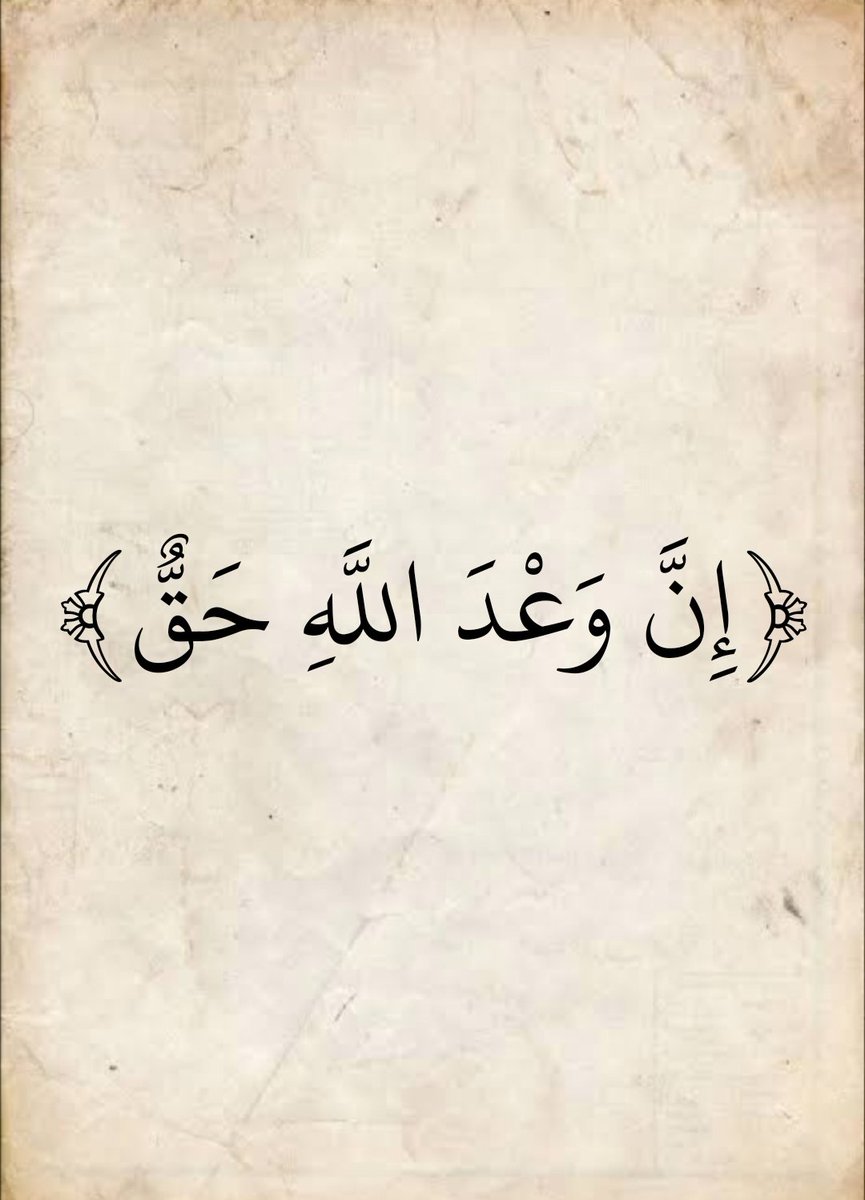 ﴿إِنَّ وَعْدَ اللَّهِ حَقٌّ﴾